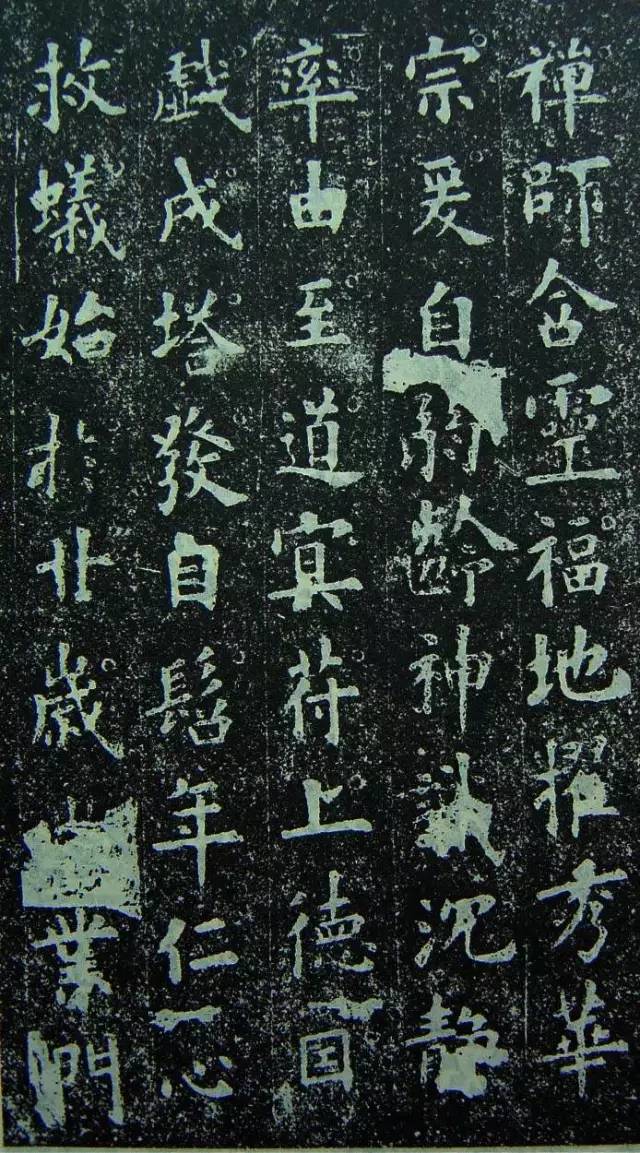 禪師含靈福地擢秀華
宗爰自弱齡神沉静
率由至道冥苻上德因
戲成塔發自髫年仁心
救蟻始於廿歲業門